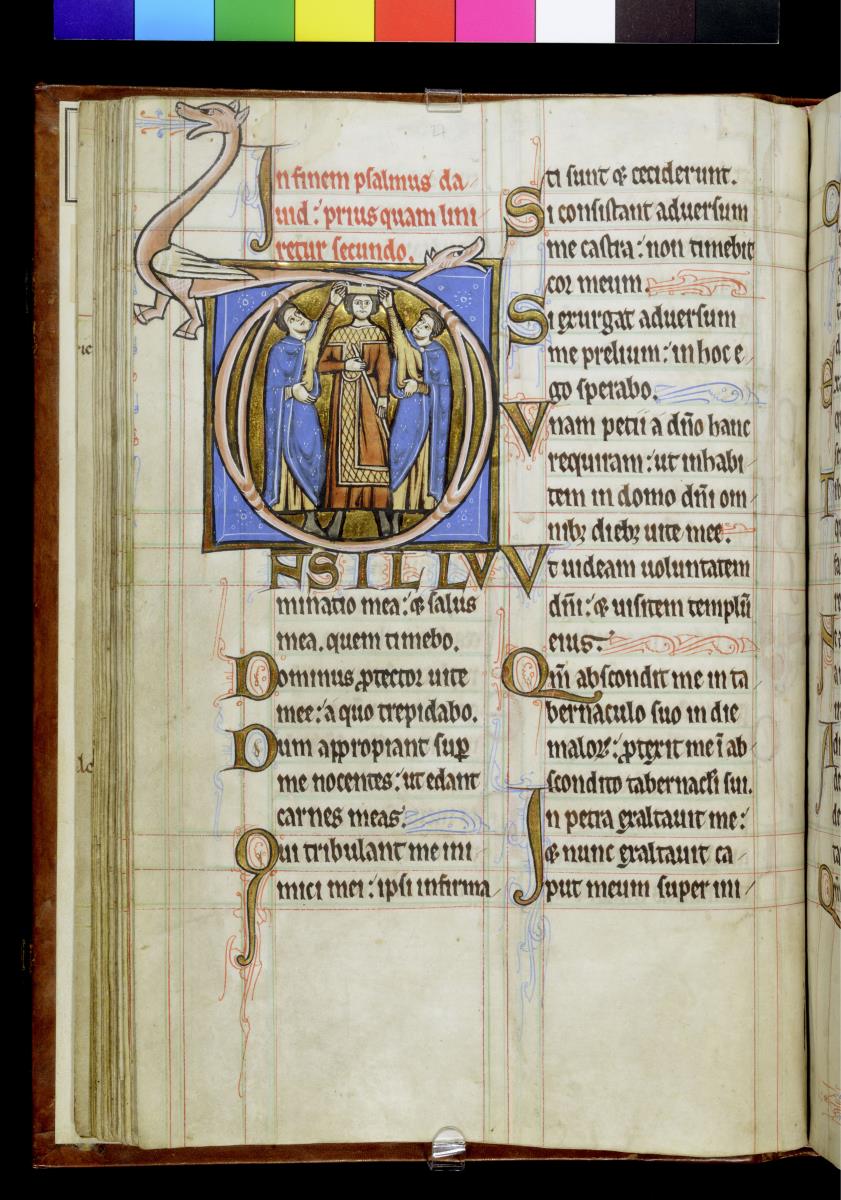 In finem psalmus da
uid : prius quam lini
retur secundo.
D
NS ILLV
minatio mea : & salus
mea. quem timebo.
Dominus ꝓtector uite
mee : a quo trepidabo.
Dum appropiant suꝑ
me nocentes : ut edant
carnes meas.
Qui tribulant me ini
mici mei : ipsi infirma
ti sunt & ceciderunt.
Si consistant aduersum
me castra : non timebit
cor meum
Si exurgat aduersum
me prelium : in hoc e
go sperabo.
Vnam petii a dño hanc
requiram : ut inhabi
tem in domo dñi om
nibꝫ diebꝫ uite mee.
Vt uideam uoluntatem
dñi : & uisitem templū
eius.
Qm̄ abscondit me in ta
bernaculo suo in die
maloꝝ : ꝓtexit me ī ab
scondito tabernacłi sui.
In petra exaltauit me :
& nunc exaltauit ca
put meum super ini